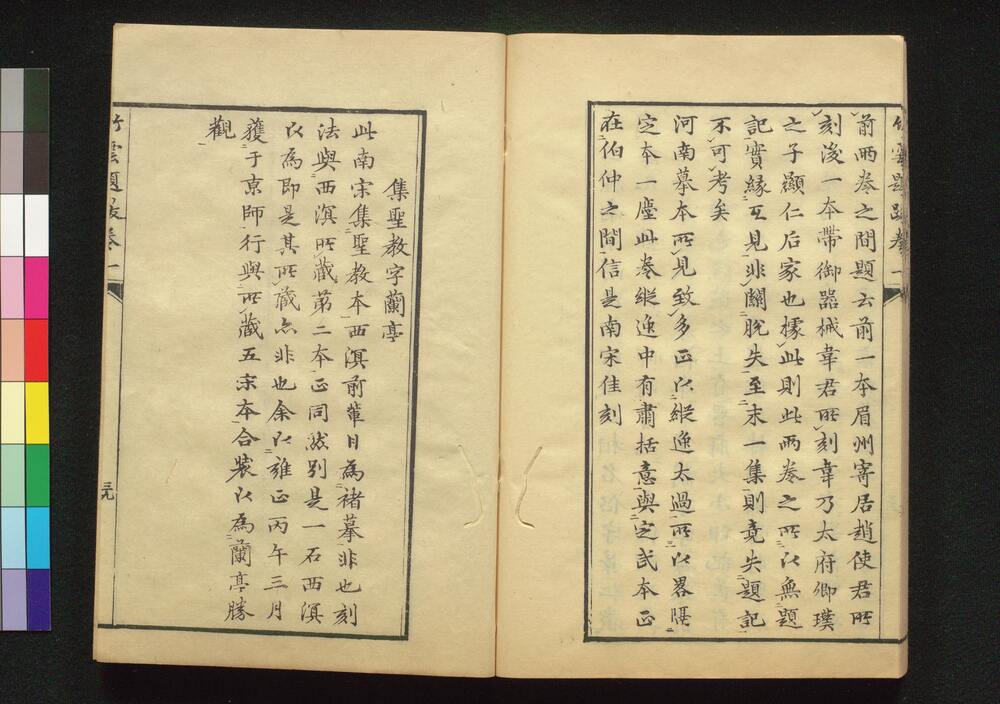 竹雲題跋卷一
前兩卷之間題云前一本眉州寄居趙使君所
刻後一本帶御器械韋君所刻韋乃太府卿璞
之子顯仁后家也據此則此兩卷之所以無題
記實緣互見非關脫失至末一集則竟失題記
不可考矣
河南摹本所見致多正以縱逸太過所以畧隱
定本一塵此卷縱逸中有肅括意與定武本正
在伯仲之間信是南宋佳刻
集聖教字蘭亭
此南宋集聖教本西溟前輩目為褚摹非也刻
法與西溟所藏第二本正同然別是一石西溟
以為即是其所藏亦非也余以雍正丙午三月
獲于京師行與所藏五宋本合裝以為蘭亭勝
觀
竹雲題跋卷一
三九